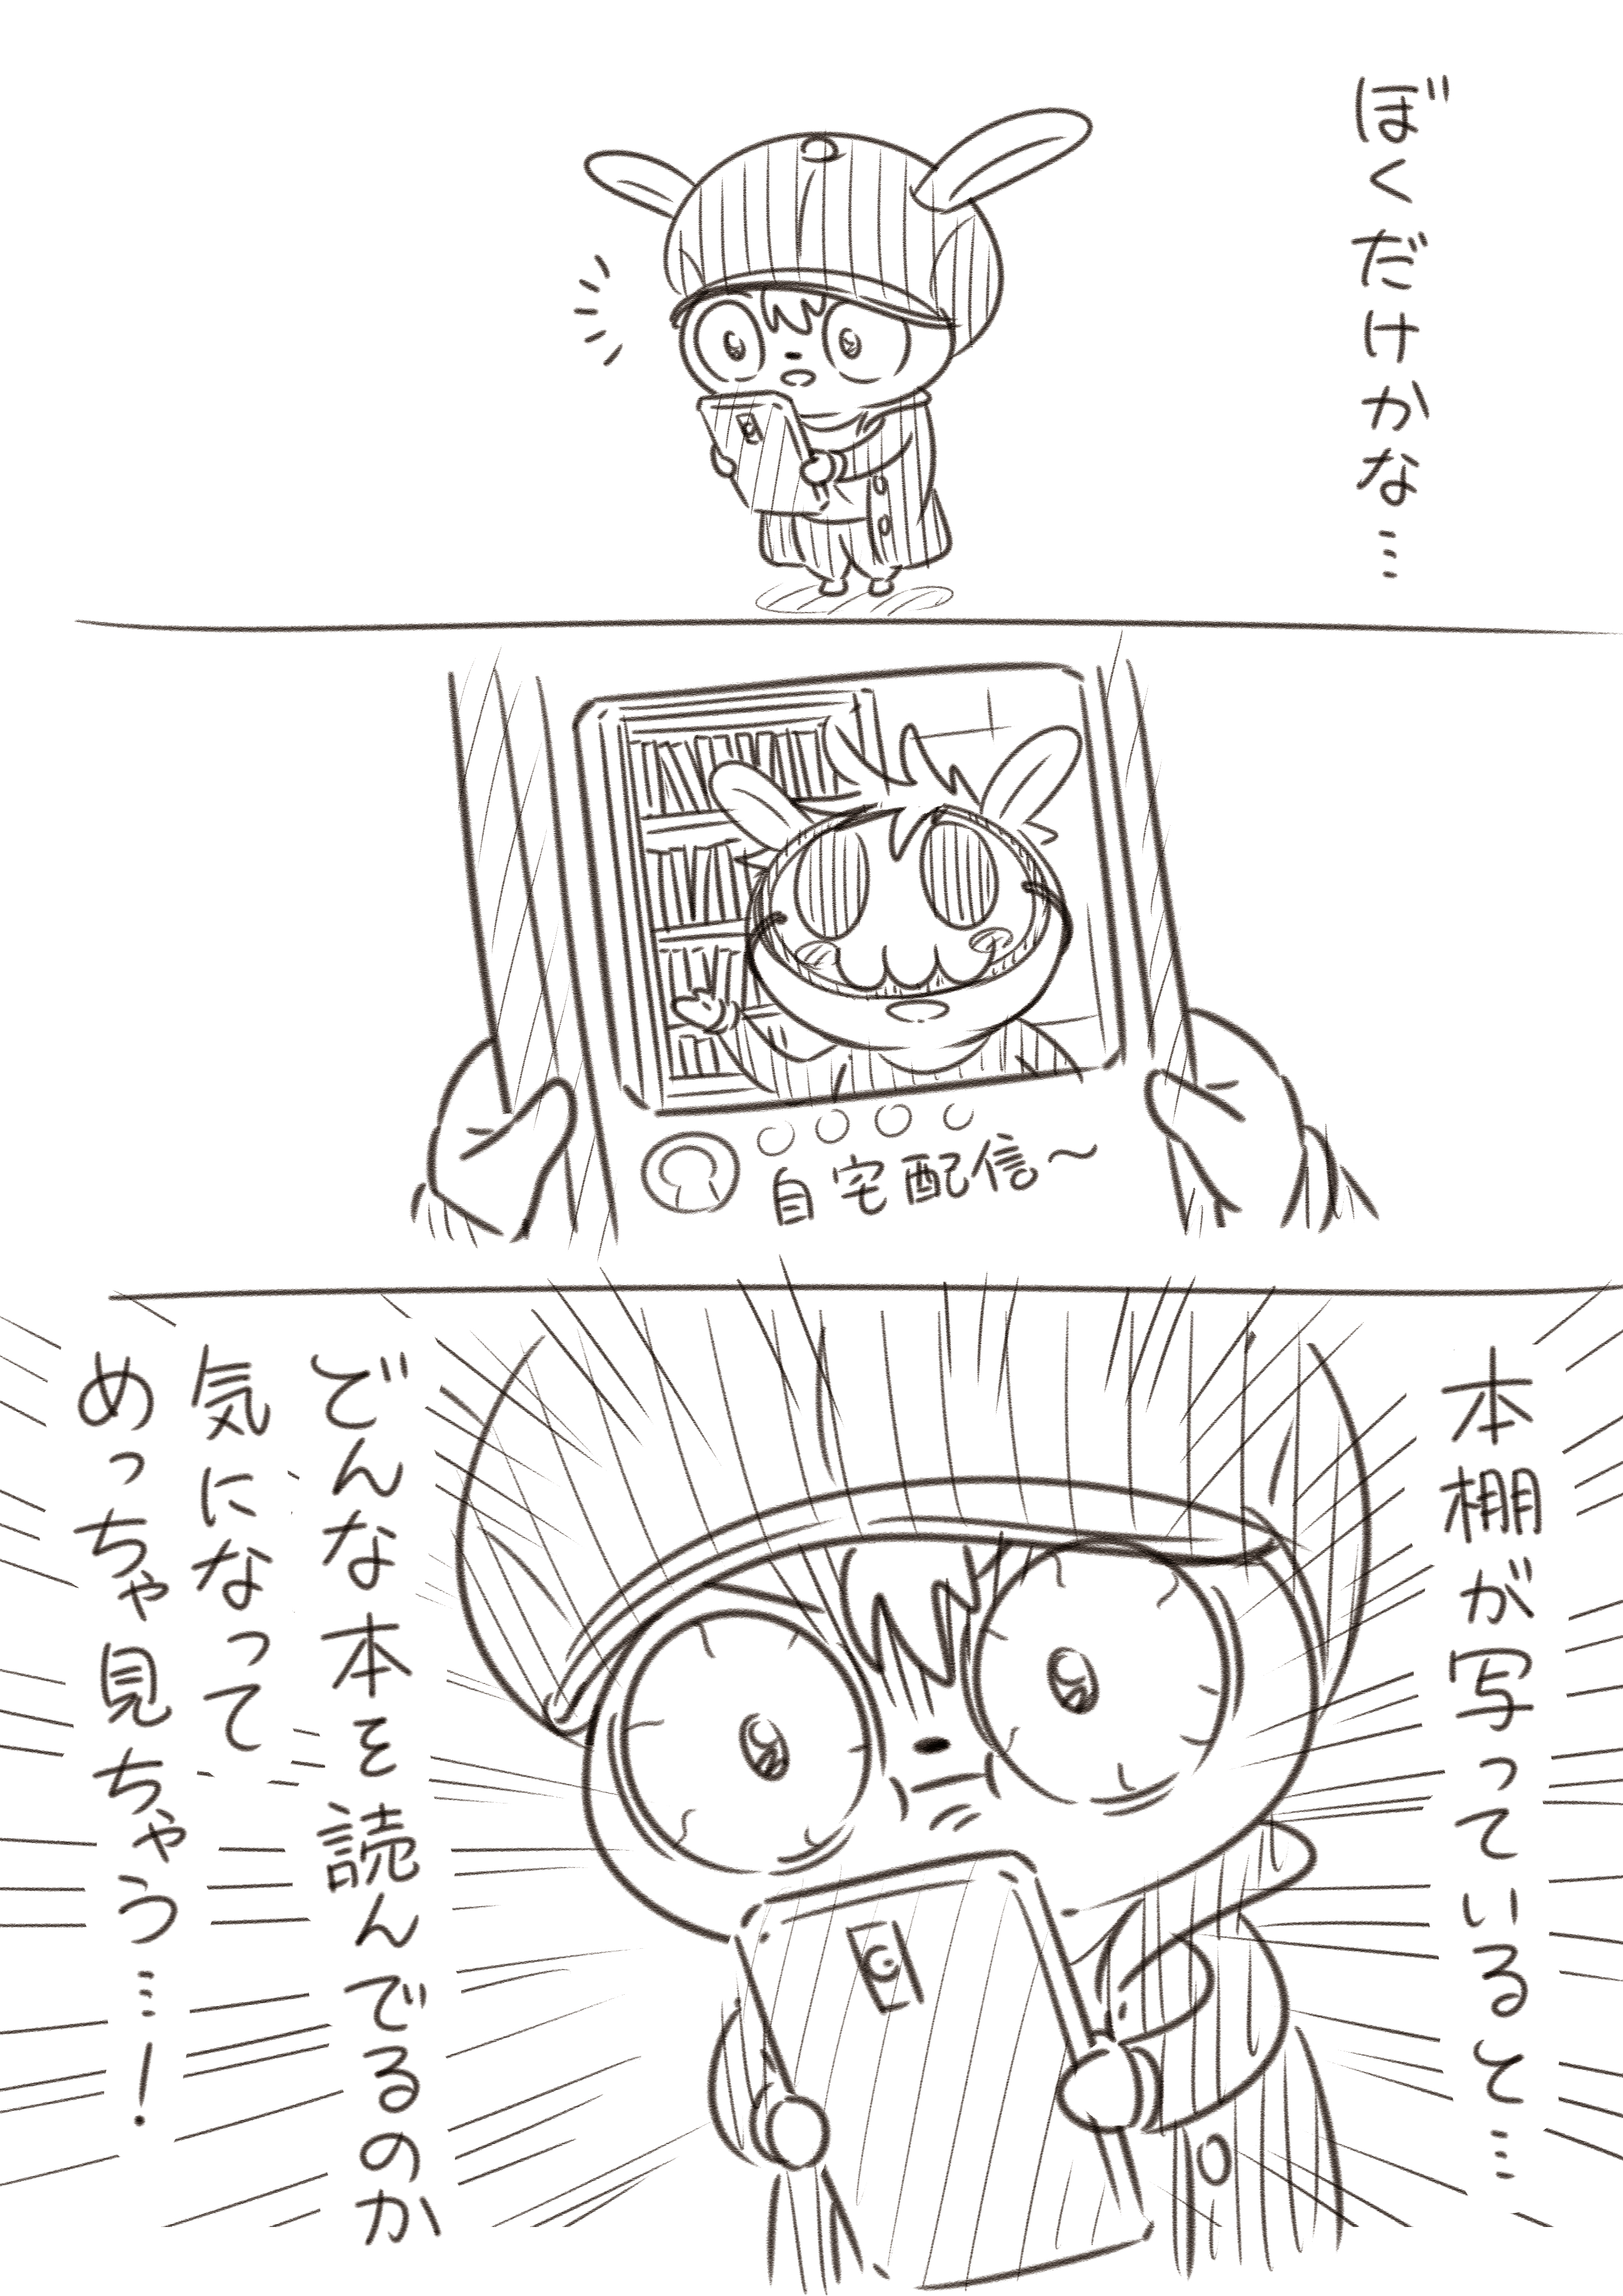 ぼくだけかな…
自宅配信～
本棚が写っていると…
どんな本を読んでるのか
気になって
めっちゃ見ちゃう…！